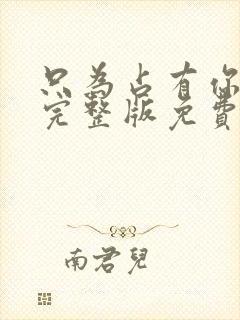 只為占有你
完整版免費
南君兒